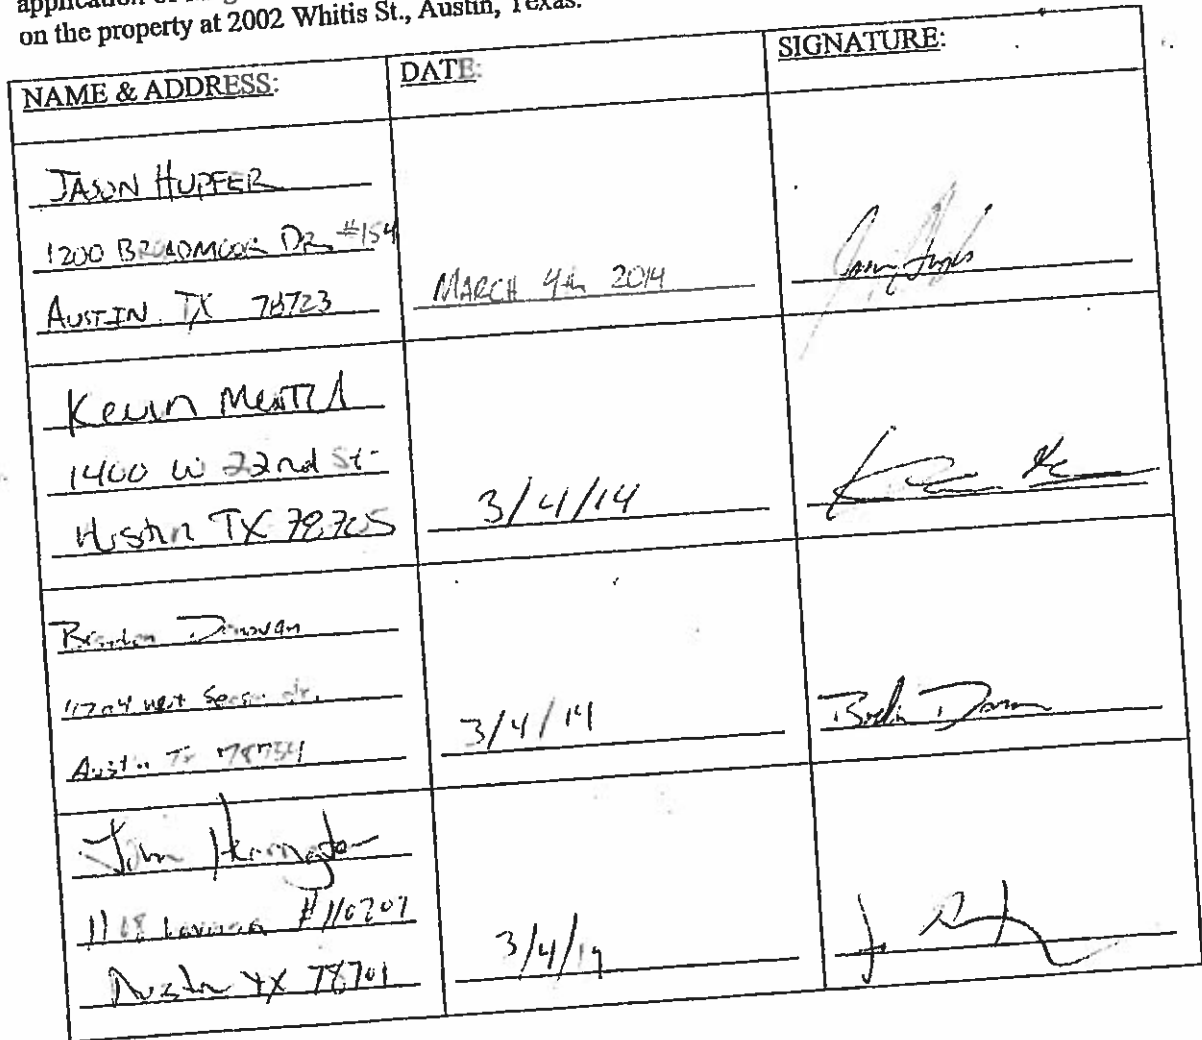 on the property at 2002 Whitis St., Austin, Texas.
NAME & ADDRESS: DATE: SIGNATURE:
JASON HUPFER
1200 BROADMOOR DR #154
AUSTIN TX 78723
MARCH 4th 2014
Kevin
1400 W 22nd St.
Austin TX 78705
3/4/14
Donovan
Austin TX
3/4/14
John Herrington
#110707
Austin TX 78701
3/4/14